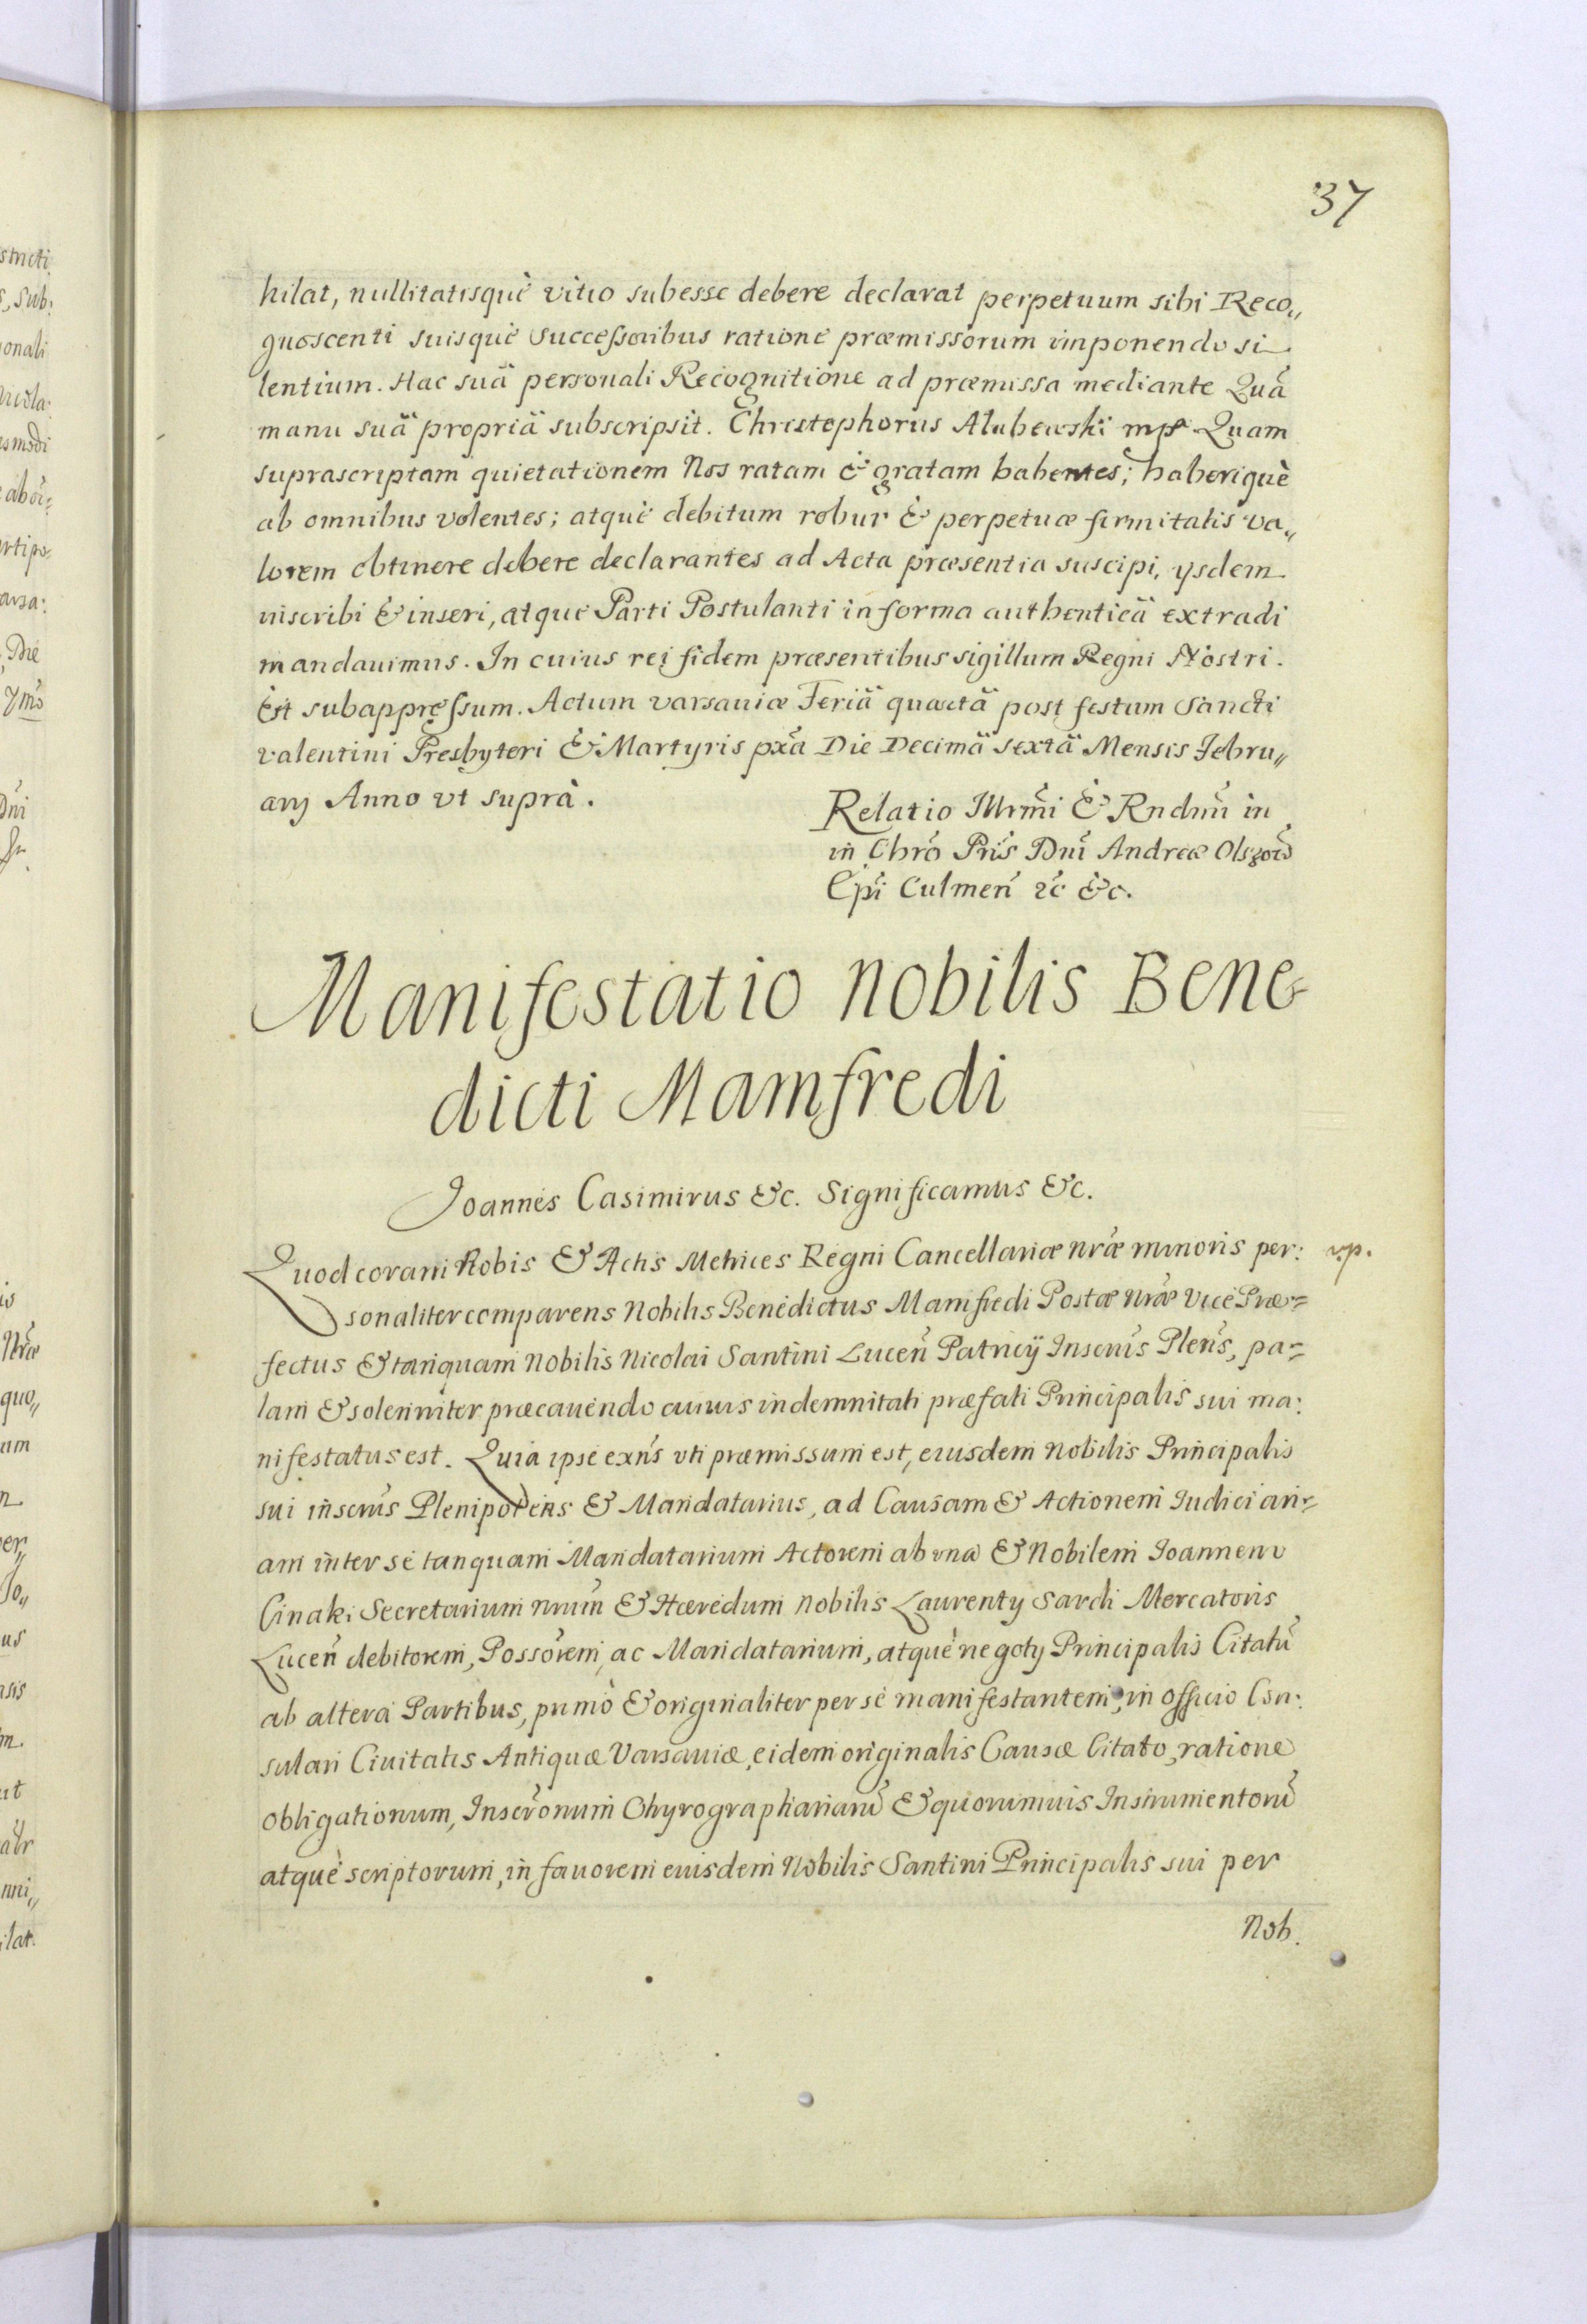 37
hilat, nullitatisquè vitio subesse debere declarat perpetuum sibi Reco„
gnoscenti suisquè successoribus ratione præmissorum imponendo si
lentium. Hac suâ personali Recognitione ad præmissa mediante Quâ
manu suâ propriâ subscripsit. Christophorus Alubewski mp Quam
suprascriptam quietationem Nos ratam & gratam habentes; haberiquè
ab omnibus volentes; atquè debitum robur & perpetuæ firmitatis va„
lorem obtinere debere declarantes ad Acta præsentia suscipi, ysdem
inscribi & inseri, atque Parti Postulanti in forma authenticâ extradi
mandauimus. In cuius rei fidem præsentibus sigillum Regni Nostri.
Est subappressum. Actum varsauiæ Feriâ quartâ post festum Sancti
valentini Presbyteri & Martyris pxã Die Decimâ sextâ Mensis Febru„
arij Anno vt suprà.
Relatio Illrmi & Rndmi in
in Chro Pris Dni Andreæ Olszow
Epi Culmen̄ &c &c.
Manifestatio Nobilis Bene-
dicti Mamfredi
Joannes Casimirus &c. Significamus &c.
Quod coram Nobis & Actis Metrices Regni Cancellariæ nræ minoris per: vp.
sonaliter comparens Nobilis Benedictus Mamfredi Postæ nræ Vice Præ=
fectus & tanquam Nobilis Nicolai Santini Lucen̄ Patricÿ Inscris Plens, pa=
lam & solenniter præcauendo cuiuis indemnitati præfati Principalis sui ma:
nifestatus est. Quia ipse exns vti præmissum est, eiusdem Nobilis Principalis
sui inscrus Plenipotens & Mandatarius, ad Causam & Actionem Iudiciari=
am inter se tanquam Mandatarium Actorem ab vna & Nobilem Joannem
Cinaki Secretarium nrum & Hæredum Nobilis Laurenty Sardi Mercatoris
Lucen̄ debitorem, Possorem, ac Mandatarium, atquè negoty Principalis Citatū
ab altera Partibus, primò & originaliter per se manifestantem, in officio Con:
sulari Ciuitatis Antiquæ Varsauiæ, eidem originalis Causæ Citato, ratione
obligationum, Inscronum Chyrographariarū & quorumuis Instrumentorū
atquè scriptorum, in fauorem euisdem Nobilis Santini Principalis sui per
Nob.